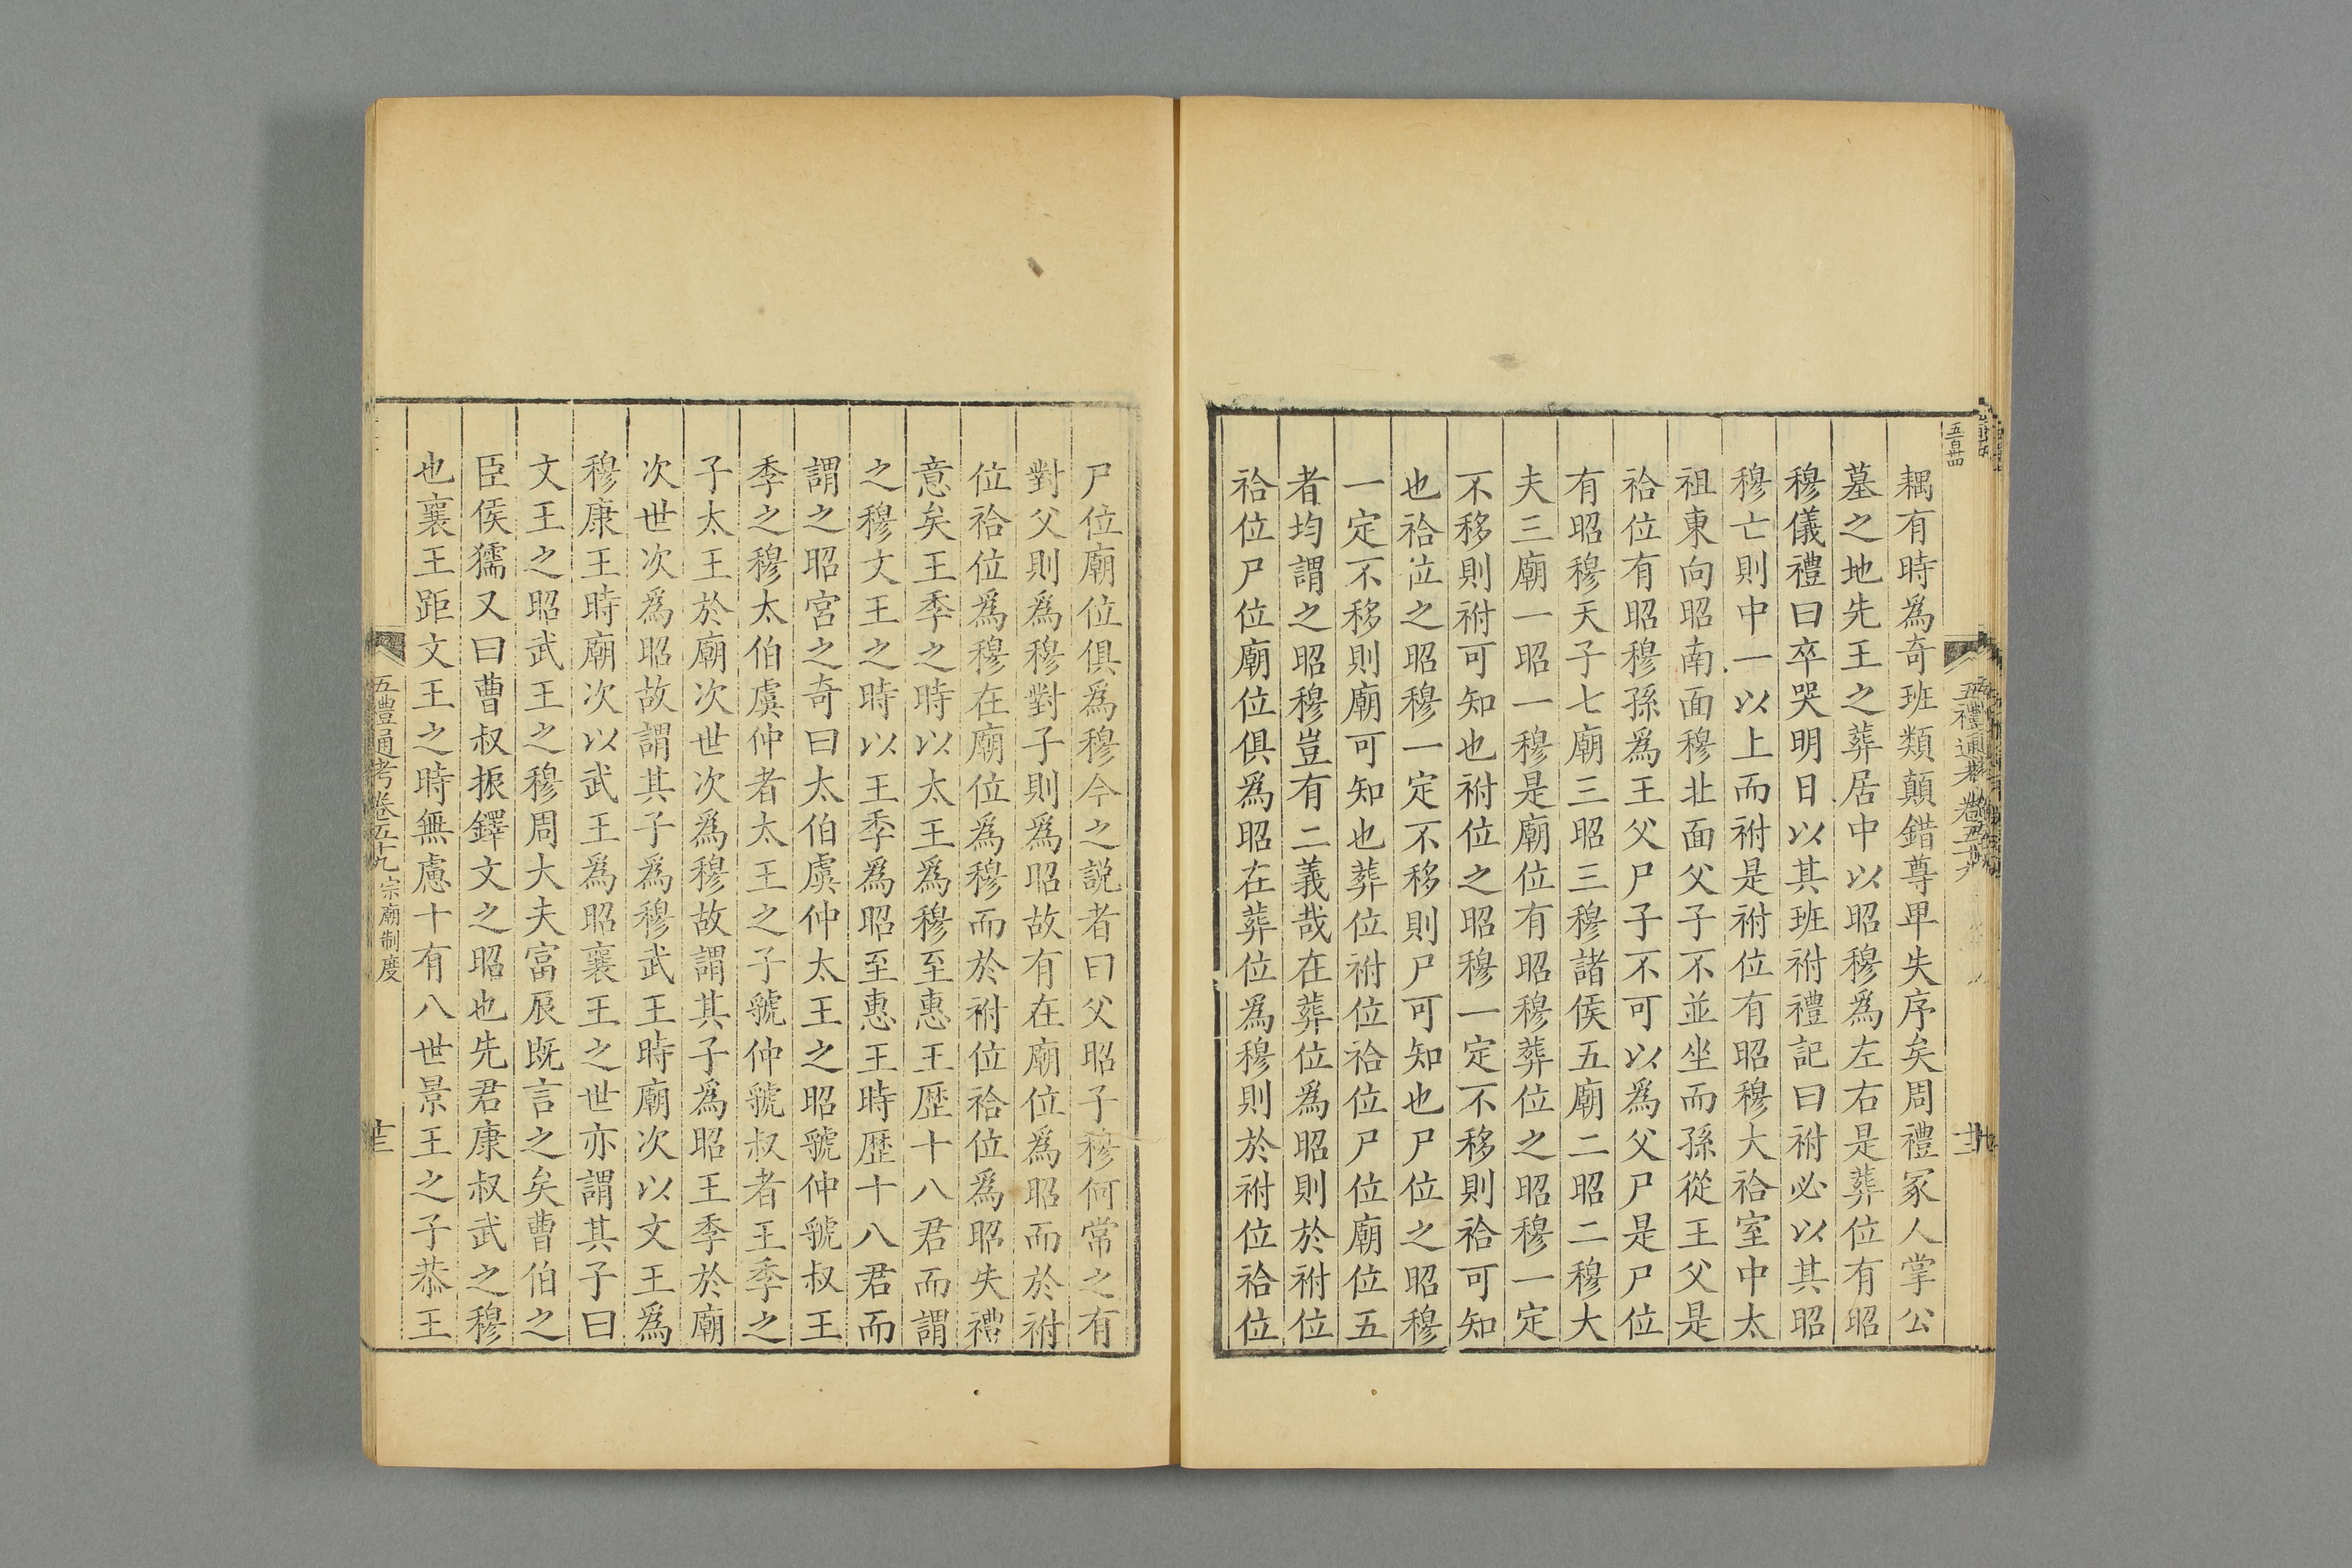 耦有時爲奇班類顛錯尊卑失序矣周禮冢人掌公
墓之地先王之葬居中以昭穆爲左右是葬位有昭
穆儀禮曰卒哭明日以其班祔禮記曰祔必以其昭
穆亡則中一以上而祔是祔位有昭穆大祫室中太
祖東向昭南面穆北面父子不並坐而孫從王父是
祫位有昭穆孫爲王父尸子不可以爲父尸是尸位
有昭穆天子七廟三昭三穆諸侯五廟二昭二穆大
夫三廟一昭一穆是廟位有昭穆葬位之昭穆一定
不移則祔可知也祔位之昭穆一定不移則祫可知
也祫位之昭穆一定不移則尸可知也尸位之昭穆
一定不移則廟可知也葬位祔位祫位尸位廟位五
者均謂之昭穆豈有二義哉在葬位爲昭則於祔位
祫位尸位廟位俱爲昭在葬位爲穆則於祔位祫位
尸位廟位俱爲穆今之説者曰父昭子穆何常之有
對父則爲穆對子則爲昭故有在廟位爲昭而於祔
位祫位爲穆在廟位爲穆而於祔位祫位爲昭失禮
意矣王季之時以太王爲穆至惠王歷十八君而謂
之穆文王之時以王季爲昭至惠王時歷十八君而
謂之昭宮之奇曰太伯虞仲太王之昭虢仲虢叔王
季之穆太伯虞仲者太王之子虢仲虢叔者王季之
子太王於廟次世次爲穆故謂其子爲昭王季於廟
次世次爲昭故謂其子爲穆武王時廟次以文王爲
穆康王時廟次以武王爲昭襄王之世亦謂其子曰
文王之昭武王之穆周大夫富辰既言之矣曹伯之
臣侯獳又曰曹叔振鐸文之昭也先君康叔武之穆
也襄王距文王之時無慮十有八世景王之子恭王
五禮通考卷五十九 宗廟制度